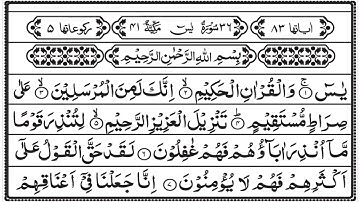 اٰیاتہا ۸۳ ۳۶ سُوْرَۃُ یٰسٓ مَکِّیَّۃٌ ۴۱ رکوعاتہا ۵
بِسْمِ اللّٰهِ الرَّحْمٰنِ الرَّحِيْمِ
يٰسٓ ۚ‏﴿۱﴾ وَالْقُرْاٰنِ الْحَكِيْمِ ۙ‏﴿۲﴾ اِنَّكَ لَمِنَ الْمُرْسَلِيْنَ ۙ‏﴿۳﴾ عَلٰى
صِرَاطٍ مُّسْتَقِيْمٍ ؕ‏﴿۴﴾ تَنْزِيْلَ الْعَزِيْزِ الرَّحِيْمِ ۙ‏﴿۵﴾ لِتُنْذِرَ قَوْمًا
مَّاۤ اُنْذِرَ اٰبَآؤُهُمْ فَهُمْ غٰفِلُوْنَ‏﴿۶﴾ لَقَدْ حَقَّ الْقَوْلُ عَلٰٓى
اَكْثَرِهِمْ فَهُمْ لَا يُؤْمِنُوْنَ‏﴿۷﴾ اِنَّا جَعَلْنَا فِىْۤ اَعْنَاقِهِمْ